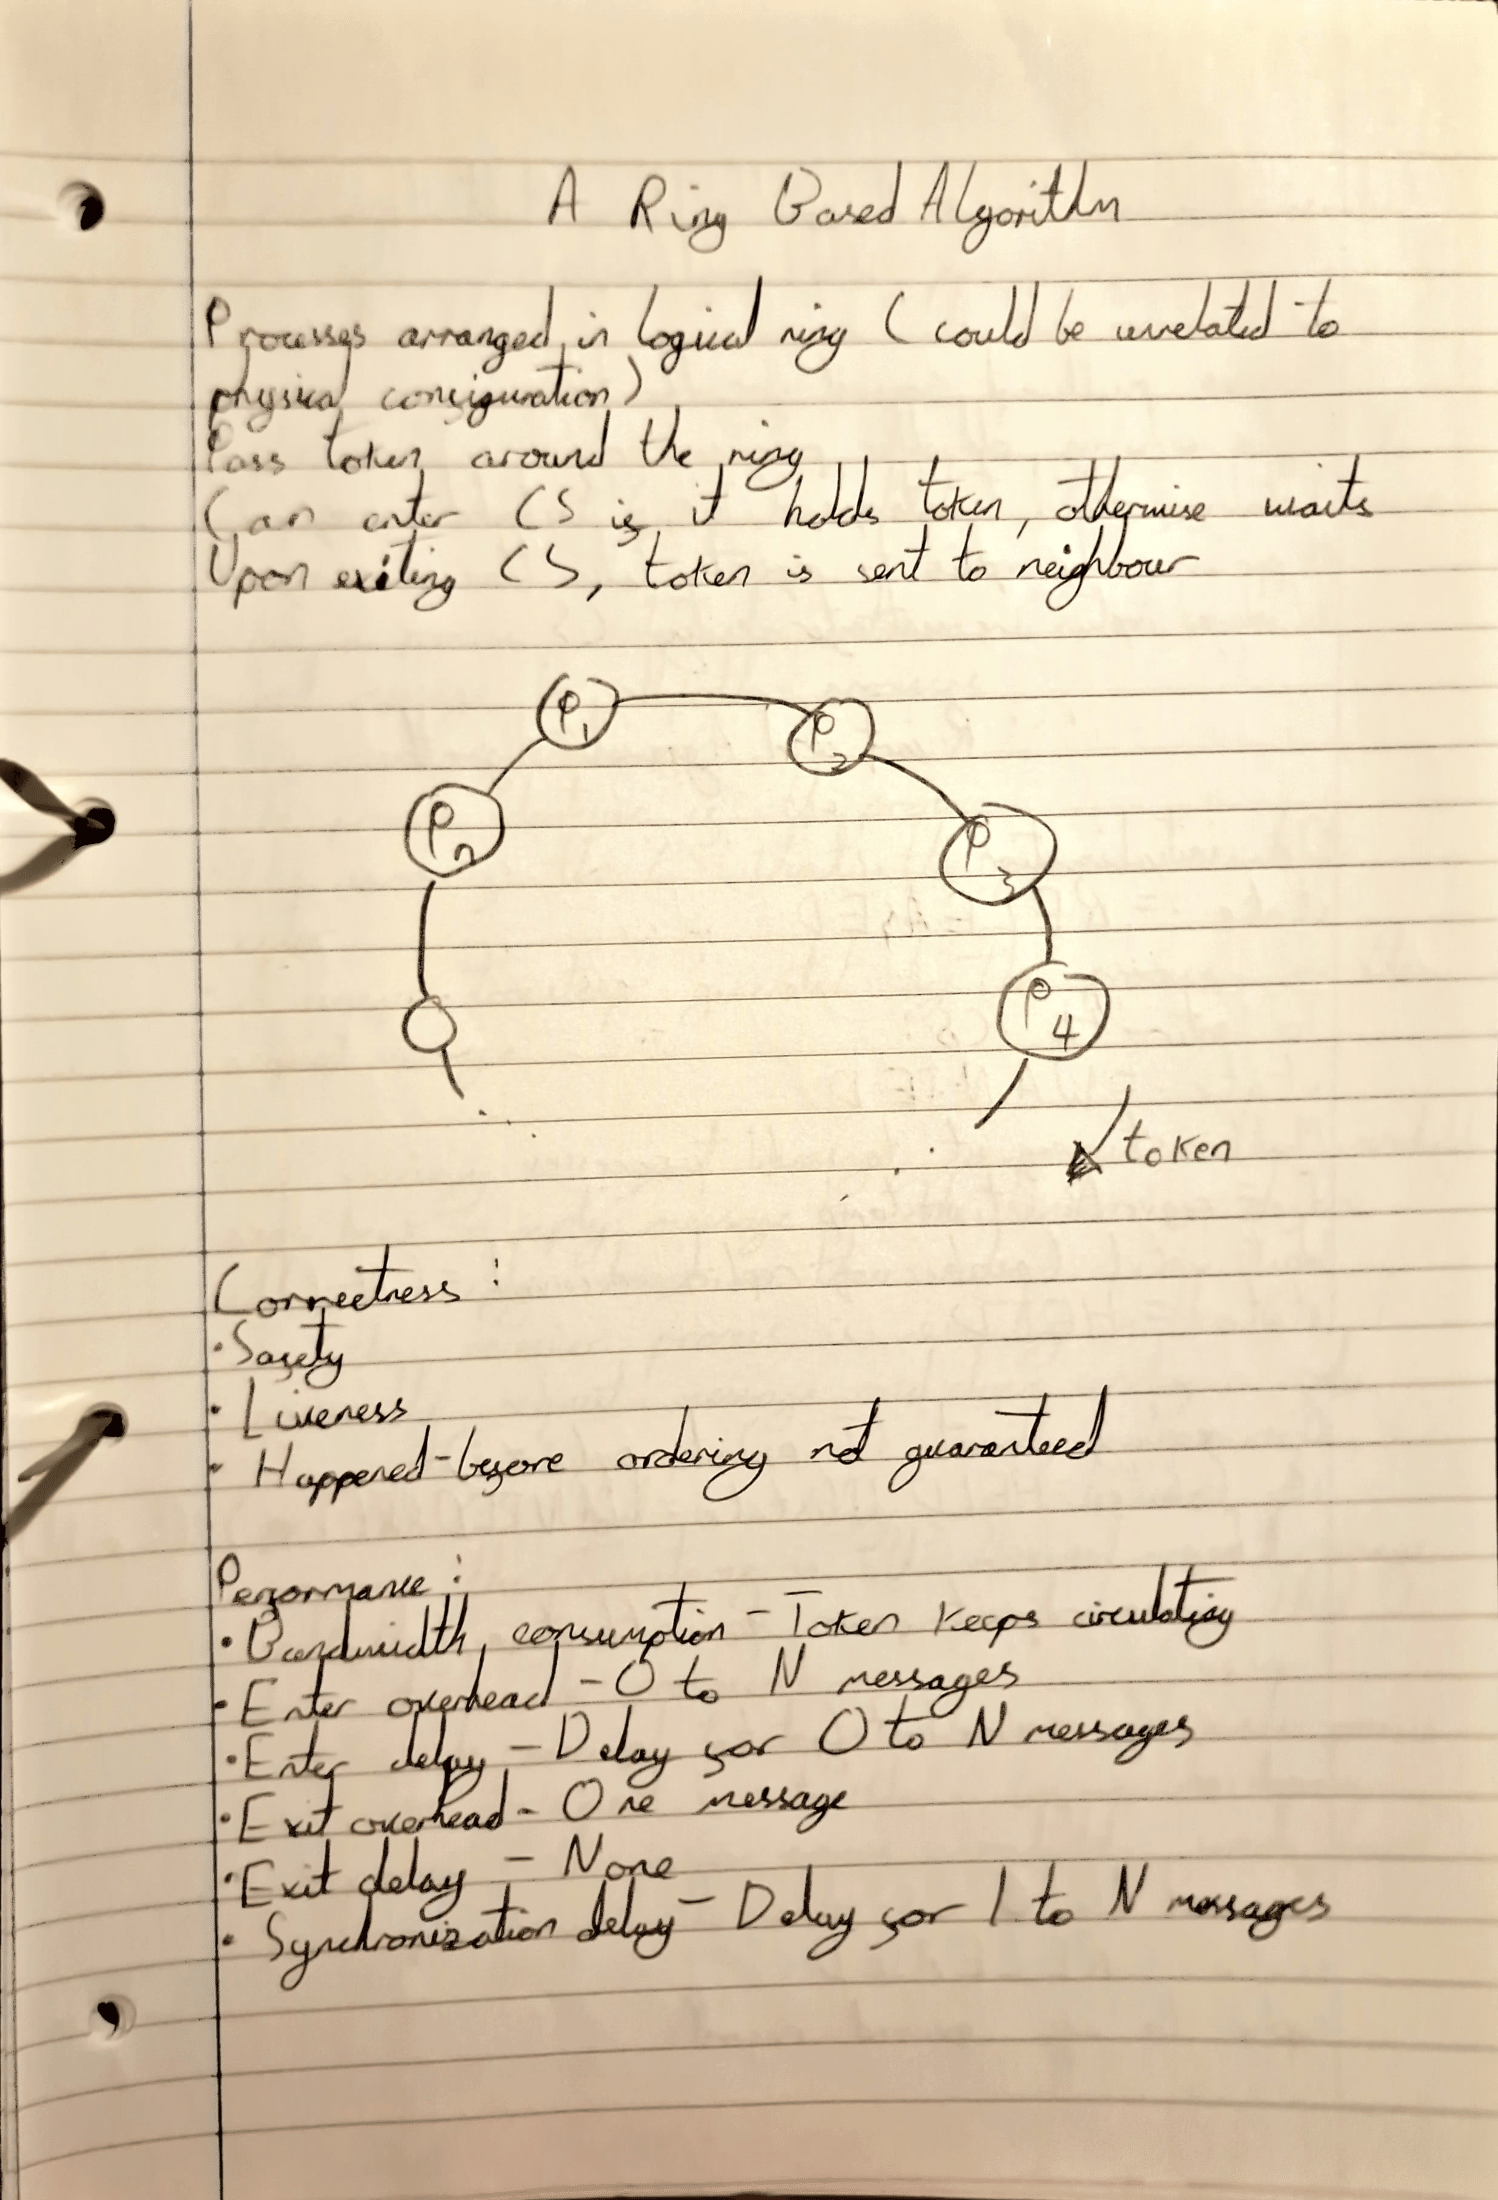 A Ring Based Algorithm
Processes arranged in logical ring (could be unrelated to
physical configuration)
Pass token around the ring
Can enter CS if it holds token, otherwise waits
Upon exiting CS, token is sent to neighbour
P1
P2
Pn
P3
P4
token
Correctness:
· Safety
· Liveness
· Happened-before ordering not guaranteed
Performance:
· Bandwidth consumption - Token keeps circulating
· Enter overhead - 0 to N messages
· Enter delay - Delay for 0 to N messages
· Exit overhead - One message
· Exit delay - None
· Synchronization delay - Delay for 1 to N messages